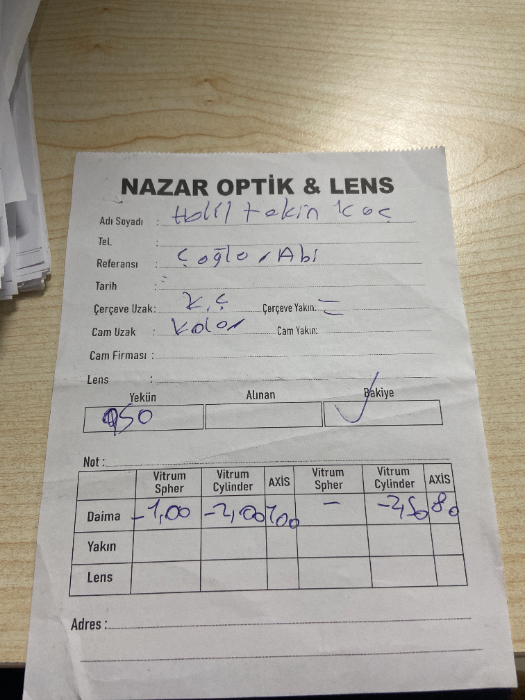 NAZAR OPTİK & LENS
Adı Soyadı : Halil tekin Koç
Tel. :
Referansı : Çağlar Abi
Tarih :
Çerçeve Uzak: K.Ç Çerçeve Yakın: =
Cam Uzak : Kolor Cam Yakın:
Cam Firması :
Lens :
Yekün Alınan Bakiye
950 ✓
Not :
Vitrum Spher Vitrum Cylinder AXİS Vitrum Spher Vitrum Cylinder AXİS
Daima -1,00 -2,00 100 - -2,50 80
Yakın
Lens
Adres :